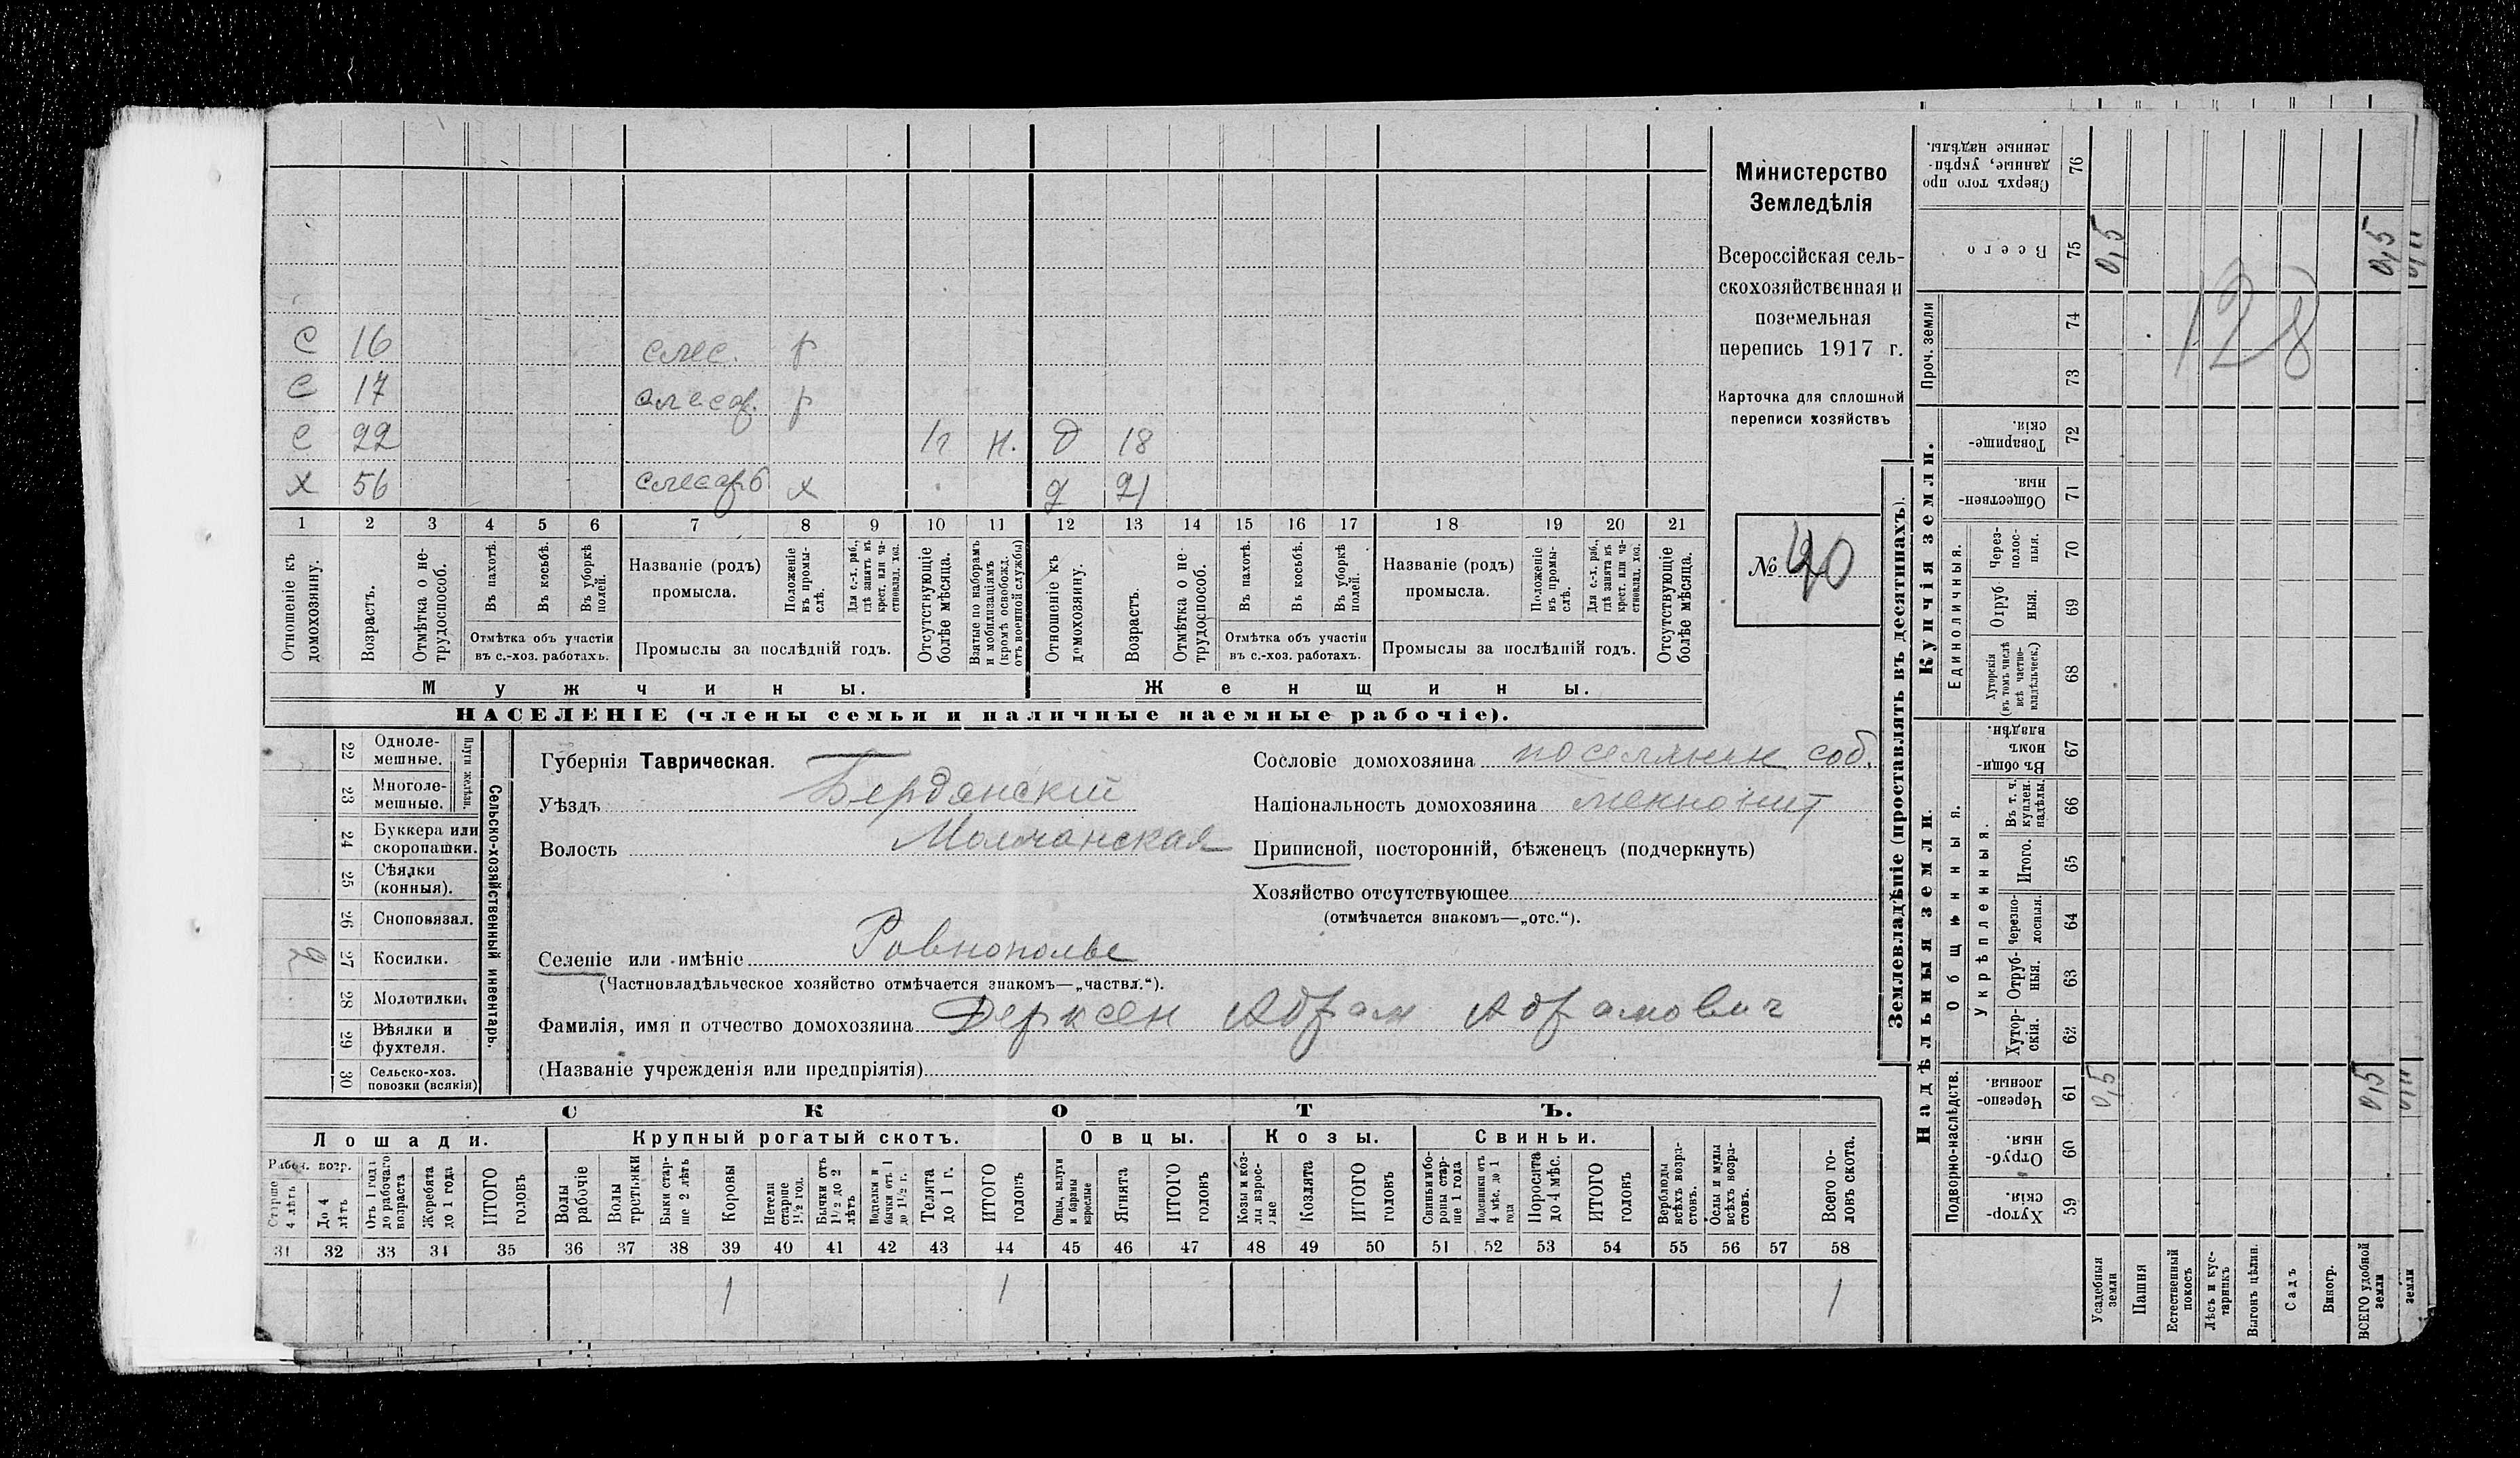 С 16 слес. р
С 17 слесар. р
С 22 п н. д 18
х 56 слесарь х д 21
1 2 3 4 5 6 7 8 9 10 11 12 13 14 15 16 17 18 19 20 21
Отношеніе къ домохозяину.
Возрастъ.
Отмѣтка о не-трудоспособ.
Въ пахотѣ.
Въ косьбѣ.
Въ уборкѣ полей.
Отмѣтка объ участіи въ с.-хоз. работахъ.
Названіе (родъ) промысла.
Положеніе въ промы-слѣ.
Для с.-х. раб., гдѣ занятъ въ крест. или ча-стновлад. хоз.
Промыслы за послѣдній годъ.
Отсутствующіе болѣе мѣсяца.
Взятые по наборамъ и мобилизаціямъ (кромѣ освобожд. отъ военной службы)
Отношеніе къ домохозяину.
Возрастъ.
Отмѣтка о не-трудоспособ.
Въ пахотѣ.
Въ косьбѣ.
Въ уборкѣ полей.
Отмѣтка объ участіи въ с.-хоз. работахъ.
Названіе (родъ) промысла.
Положеніе въ промы-слѣ.
Для с.-х. раб., гдѣ занята въ крест. или ча-стновлад. хоз.
Промыслы за послѣдній годъ.
Отсутствующіе болѣе мѣсяца.
Мужчины. Женщины.
НАСЕЛЕНІЕ (члены семьи и наличные наемные рабочіе).
Министерство
Земледѣлія
Всероссійская сель-
скохозяйственная и
поземельная
перепись 1917 г.
Карточка для сплошной
переписи хозяйствъ
№ 40
Сельско-хозяйственный инвентарь.
Плуги желѣзн.
22 Одноле-мешные.
23 Многоле-мешные.
24 Буккера или скоропашки.
25 Сѣялки (конныя).
26 Сноповязал.
27 Косилки. 2
28 Молотилки.
29 Вѣялки и фухтеля.
30 Сельско-хоз. повозки (всякія)
Губернія Таврическая.
Уѣздъ Бердянскій
Волость Молочанская
Селеніе или имѣніе Ровнополье
(Частновладѣльческое хозяйство отмѣчается знакомъ—„частвл.“).
Фамилія, имя и отчество домохозяина Дерксен Абрам Абрамович
(Названіе учрежденія или предпріятія)
Сословіе домохозяина поселянин соб.
Національность домохозяина менонит
Приписной, посторонній, бѣженецъ (подчеркнуть)
Хозяйство отсутствующее
(отмѣчается знакомъ—„отс.“).
СКОТЪ.
Лошади. Крупный рогатый скотъ. Овцы. Козы. Свиньи.
Рабоч. возр.
Старше 4 лѣтъ
До 4 лѣтъ
Отъ 1 года до рабочаго возраста
Жеребята до 1 года
ИТОГО головъ
Волы рабочіе
Волы третьяки
Быки стар-ше 2 лѣтъ
Коровы
Нетели старше 1½ год.
Бычки отъ 1½ до 2 лѣтъ
Подтелки и бычки отъ 1 до 1½ г.
Телята до 1 г.
ИТОГО головъ
Овцы, валухи и бараны взрослые
Ягнята
ИТОГО головъ
Козы и коз-лы взрос-лые
Козлята
ИТОГО головъ
Свиньи и бо-ровы стар-ше 1 года
Подсвинки отъ 4 мѣс. до 1 года
Поросята до 4 мѣс.
ИТОГО головъ
Верблюды всѣхъ возра-стовъ.
Ослы и мулы всѣхъ возра-стовъ.
Всего го-ловъ скота.
31 32 33 34 35 36 37 38 39 40 41 42 43 44 45 46 47 48 49 50 51 52 53 54 55 56 57 58
1 1 1
Землевладѣніе (проставлять въ десятинахъ).
Купчія земли.
Надѣльныя земли.
Сверхъ того про данные, укрѣп-ленные надѣлы. 76
Всего 75 0,5 0,5
Проч. земли 74 73
128
Товарище-скія. 72
Обществен-ныя. 71
Единоличныя.
Через-полос-ныя. 70
Отруб-ныя. 69
Хуторскія (въ томъ числѣ всѣ частно-владѣльческ.) 68
Общинныя.
Въ общи-номъ владѣн. 67
Укрѣпленныя.
Въ т. ч. куплен. надѣлы. 66
Итого. 65
Черезпо-лосныя. 64
Отруб-ныя. 63
Хутор-скія. 62
Подворно-наслѣдств.
Черезпо-лосныя. 61 0,5 0,5
Отруб-ныя. 60
Хутор-скія. 59
Усадебныя земли
Пашня
Естественный покосъ
Лѣсъ и кус-тарникъ
Выгонъ цѣлин.
Садъ
Виногр.
ВСЕГО удобной земли
земли